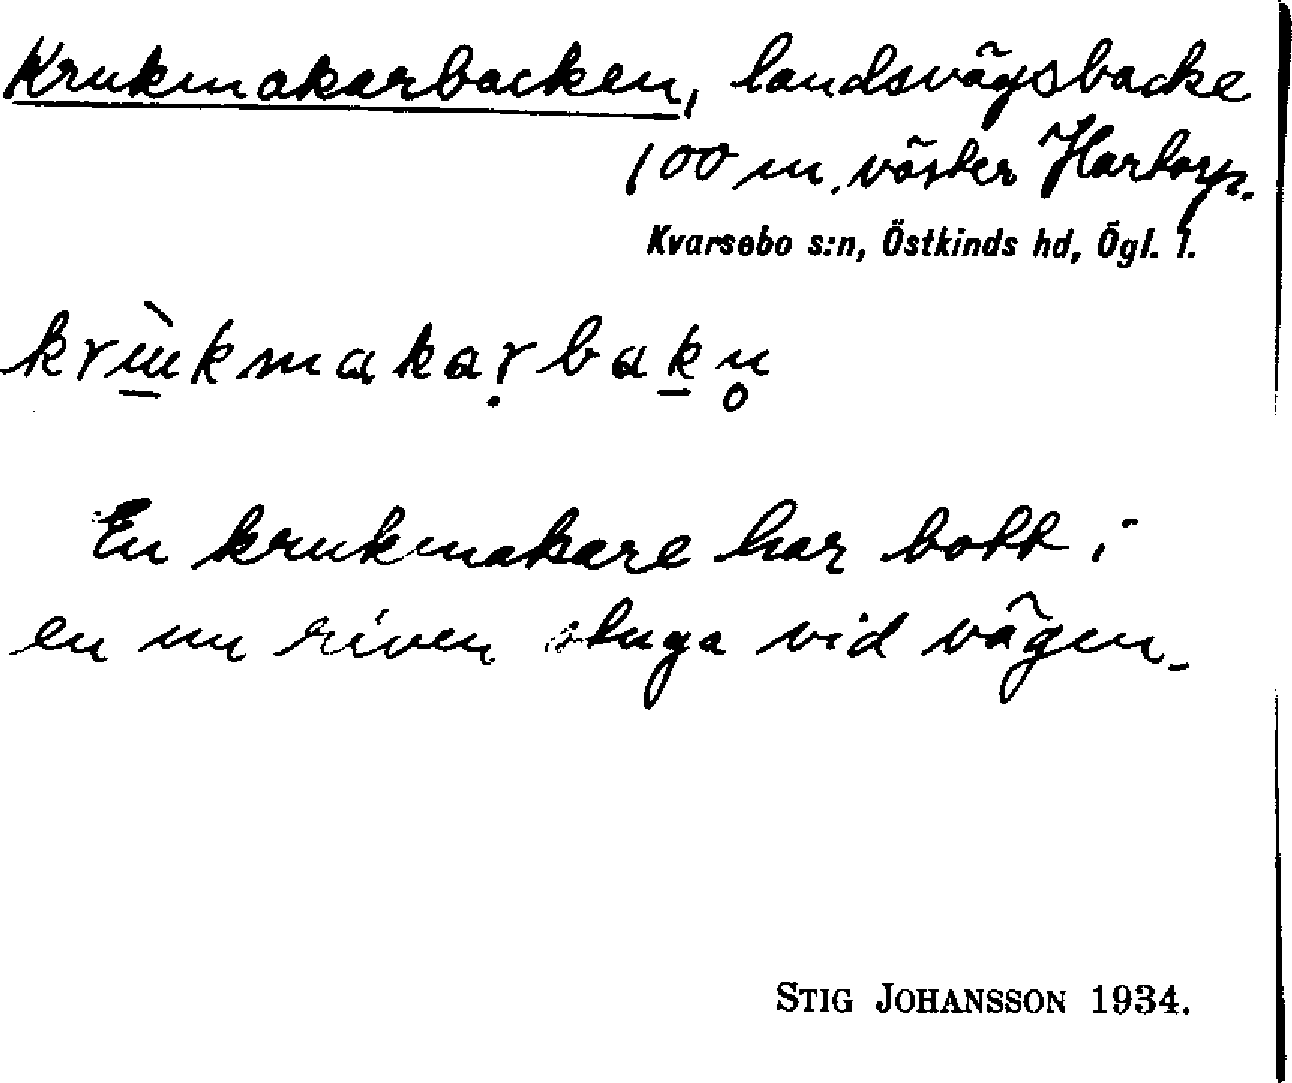 Krukmakarbacken, landsvägsbacke
100 m. väster Hartorp.
Kvarsebo s:n, Östkinds hd, Ögl. l.
krùkmakaṛbaḵn̥
En krukmakare har bott i
en nu riven stuga vid vägen.
STIG JOHANSSON 1934.